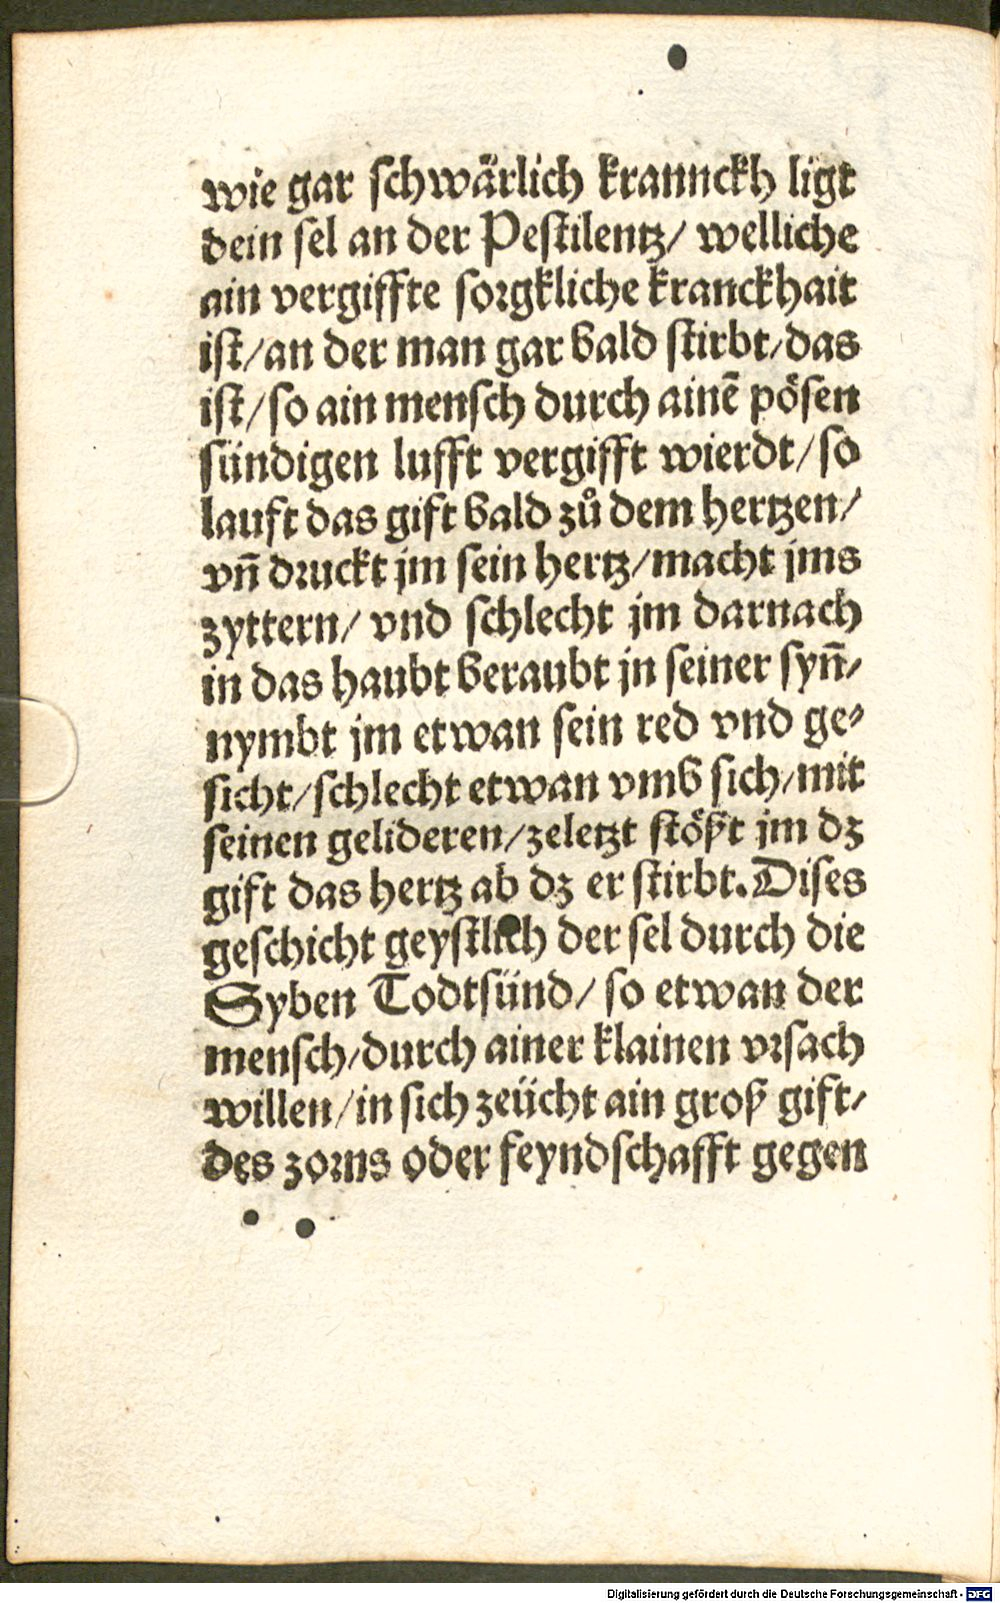 wie gar schwärlich krannckh ligt
dein sel an der Pestilentz/ welliche
ain vergiffte sorgkliche kranckhait
ist/an der man gar bald stirbt/das
ist/so ain mensch durch ainē pösen
sündigen lufft vergifft wierdt/so
lauft das gift bald zů dem hertzen/
vñ druckt jm sein hertz/macht jms
zyttern/ vnd schlecht jm darnach
in das haubt beraubt jn seiner syn̄/
nymbt jm etwan sein red vnd ge⸗
sicht/schlecht etwan vmb sich/mit
seinen gelideren/zeletzt stößt jm dz
gift das hertz ab dz er stirbt. Dises
geschicht geystlich der sel durch die
Syben Todtsünd/ so etwan der
mensch/durch ainer klainen vrsach
willen/in sich zeücht ain groß gift/
des zorns oder feyndschafft gegen
Digitalisierung gefördert durch die Deutsche Forschungsgemeinschaft - DFG